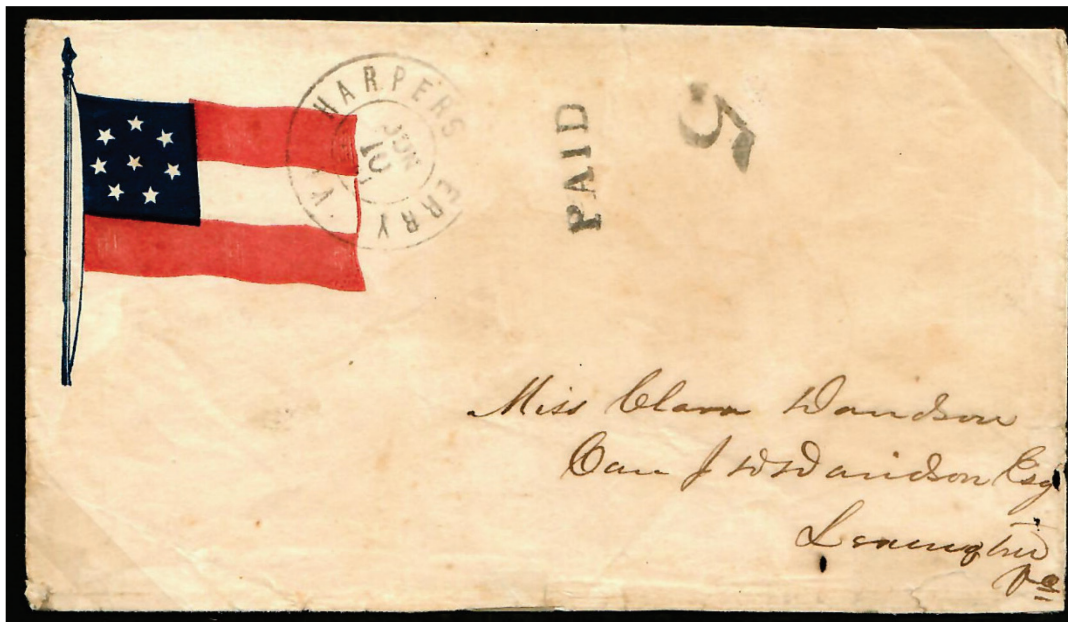 HARPERS FERRY VA.
JUN
10
PAID
5
Miss Clara Davidson
Care J D Davidson Esq
Lexington
Va